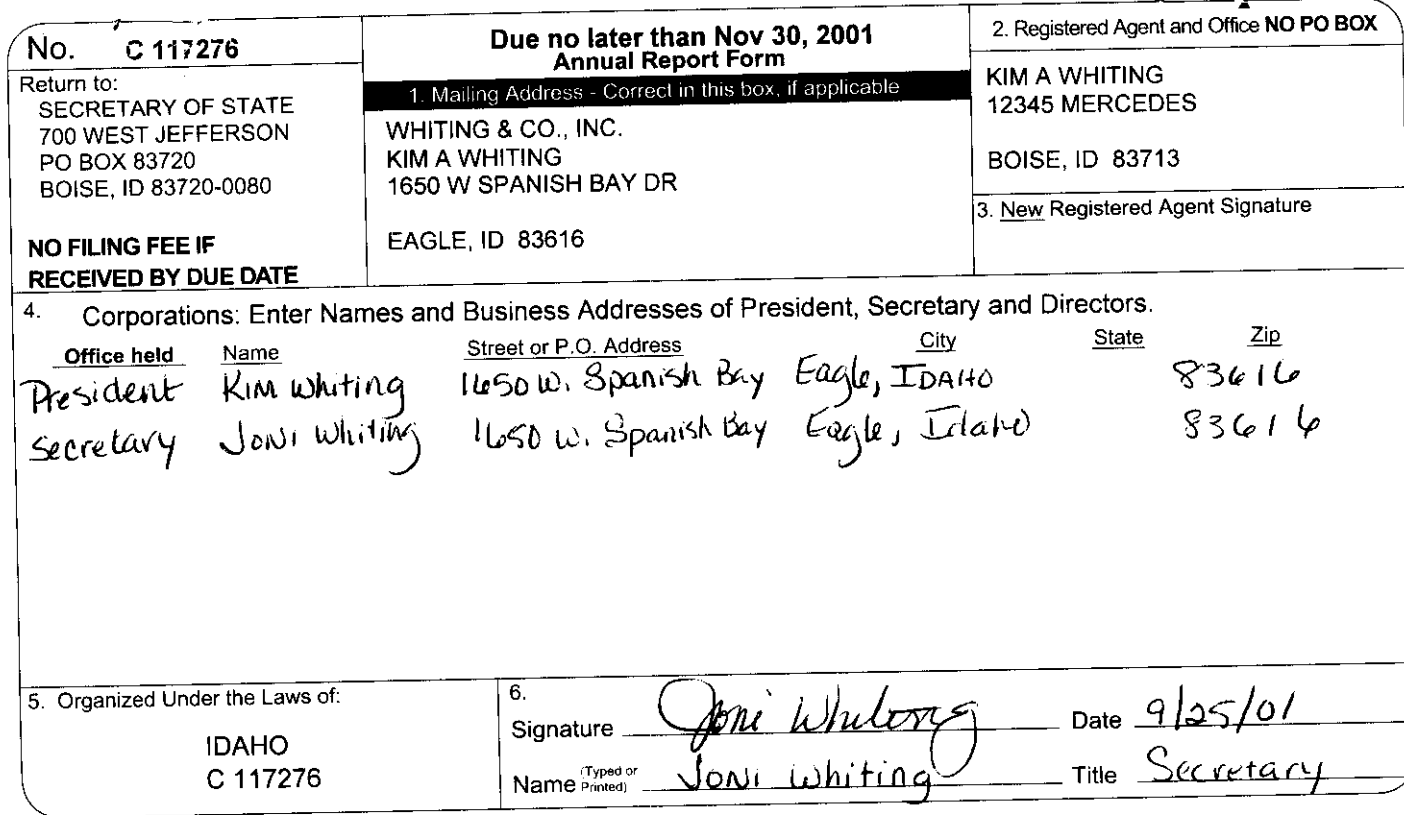 No. C 117276
Return to:
SECRETARY OF STATE
700 WEST JEFFERSON
PO BOX 83720
BOISE, ID 83720-0080
NO FILING FEE IF
RECEIVED BY DUE DATE
Due no later than Nov 30, 2001
Annual Report Form
1. Mailing Address - Correct in this box, if applicable
WHITING & CO., INC.
KIM A WHITING
1650 W SPANISH BAY DR
EAGLE, ID 83616
2. Registered Agent and Office NO PO BOX
KIM A WHITING
12345 MERCEDES
BOISE, ID 83713
3. New Registered Agent Signature
4. Corporations: Enter Names and Business Addresses of President, Secretary and Directors.
Office held Name Street or P.O. Address City State Zip
President Kim Whiting 1650 W. Spanish Bay Eagle, IDAHO 83616
Secretary Joni Whiting 1650 W. Spanish Bay Eagle, Idaho 83616
5. Organized Under the Laws of:
IDAHO
C 117276
6.
Signature Joni Whiting Date 9/25/01
Name (Typed or Printed) Joni Whiting Title Secretary